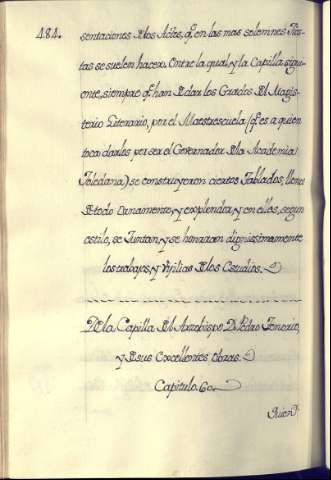 484.
sentaciones Dlos Actos, q̃ en las mas solemnes Fies-
tas se suelen hacer. Entre la qual, y la Capilla sigui-
ente, siempre q̃ han D dar los Grados Dl Magis-
terio Literario, por el Maestrescuela (q̃ es a quien
toca darlos por ser el Governador Dla Academia
Toledana) se construyeron ciertos Tablados, llenos
D todo Ornamento, y explendor, y en ellos, segun
estilo, se Juntan, y se honrraron dignissimamente
los trabajos, y Vijilias Dlos Estudios.
De la Capilla Dl Arzobispo D. Pedro Tenorio,
y D sus Excellentes Obras.
Capitulo. 6o.